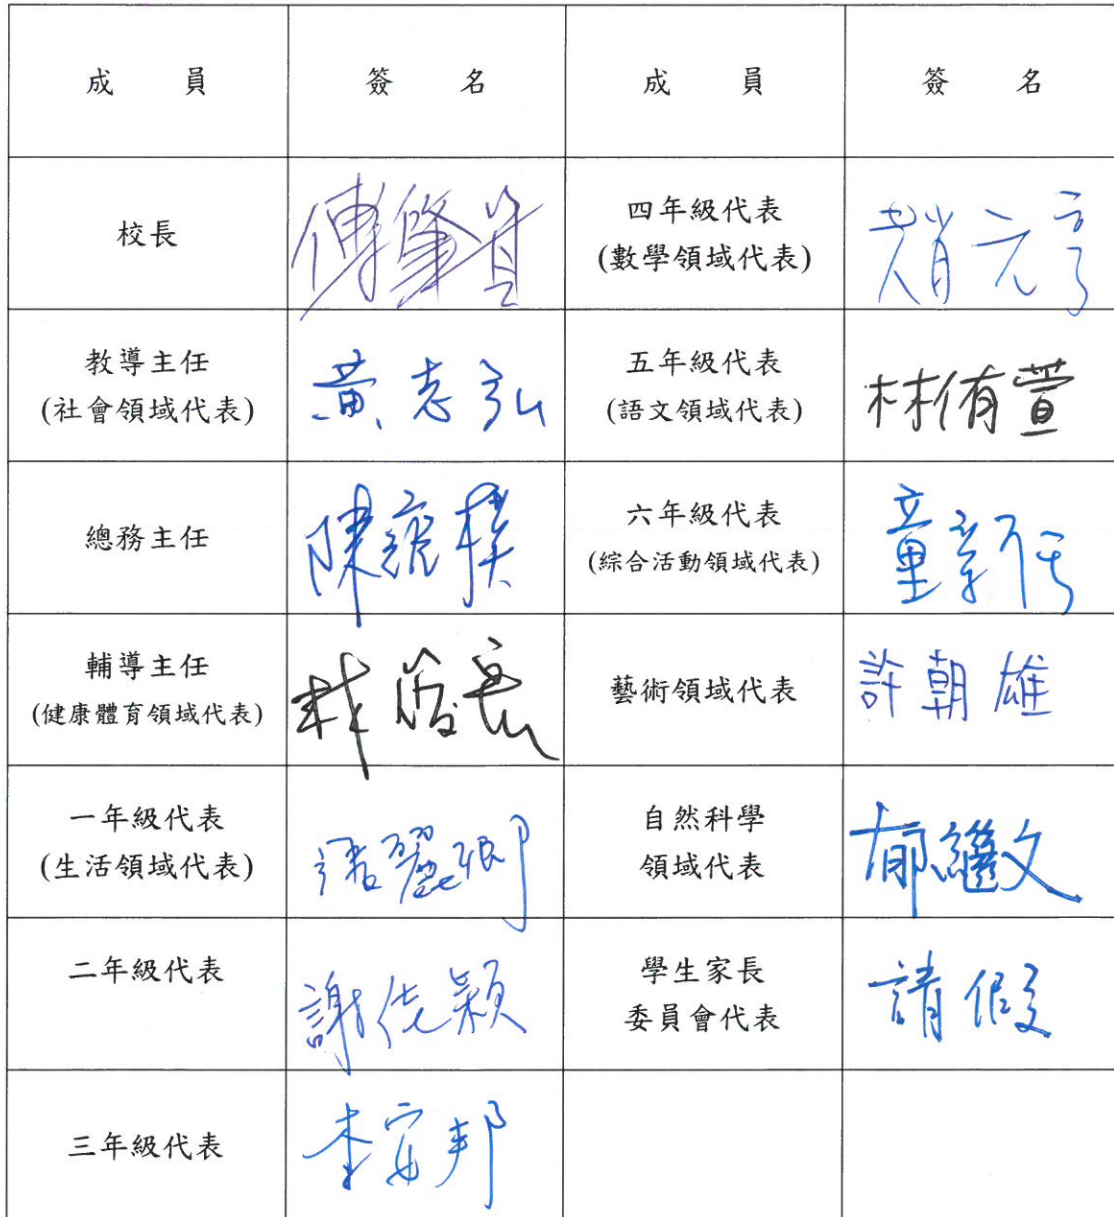 成員 簽名 成員 簽名
校長
四年級代表
(數學領域代表)
趙元亨
教導主任
(社會領域代表)
黃志弘
五年級代表
(語文領域代表)
林侑萱
總務主任
陳
六年級代表
(綜合活動領域代表)
童
輔導主任
(健康體育領域代表)
林
藝術領域代表
許朝雄
一年級代表
(生活領域代表)
自然科學
領域代表
郁繼文
二年級代表
謝 穎
學生家長
委員會代表
請假
三年級代表
李安邦